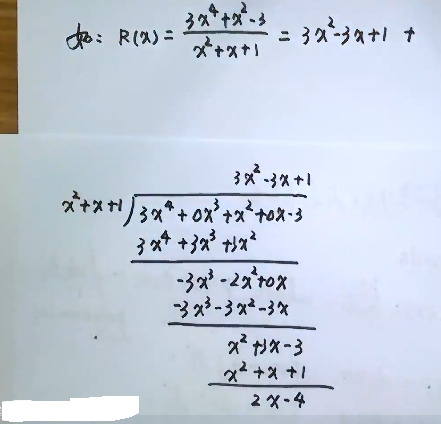 如: R(x) = (3x⁴+x²-3)/(x²+x+1) = 3x²-3x+1 +
3x²-3x+1
x²+x+1 ) 3x⁴+0x³+x²+0x-3
3x⁴+3x³+3x²
-3x³-2x²+0x
-3x³-3x²-3x
x²+3x-3
x²+x+1
2x-4